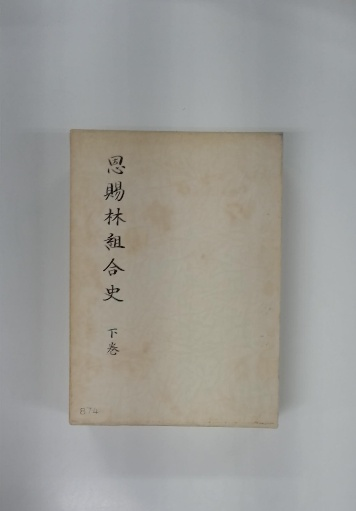 恩賜林組合史
下巻